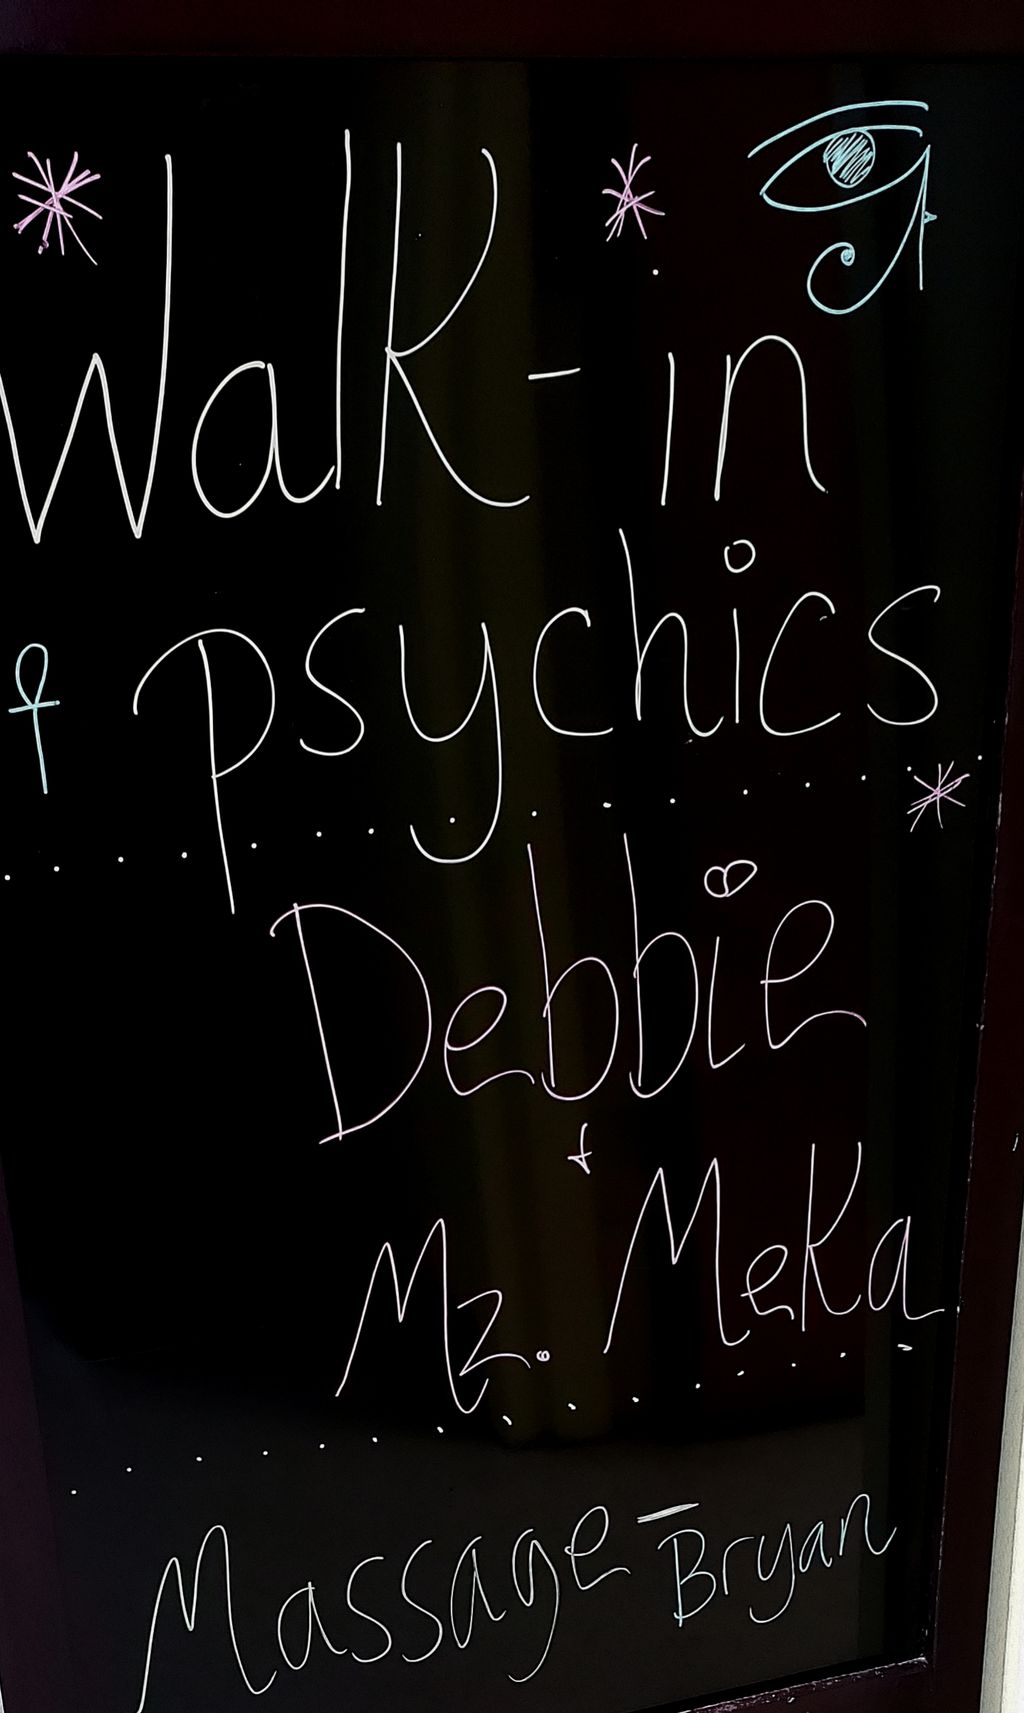 Walk-in
psychics
Debbie
+
Mz. Meka
Massage - Bryan